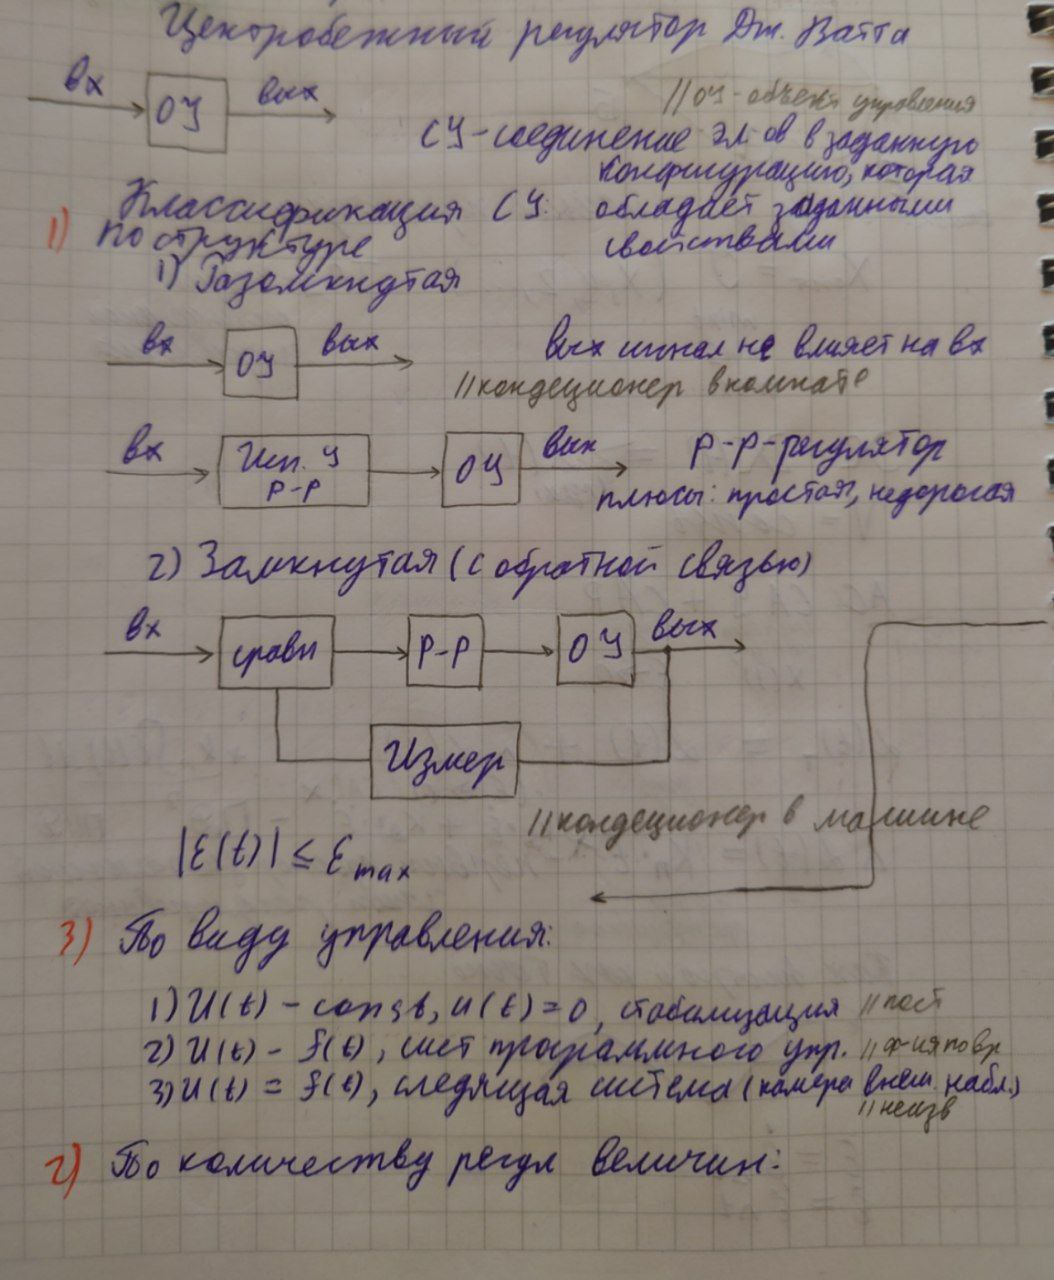 Центробежный регулятор Дж. Ватта
вх ОУ вых
//ОУ - объект управления
СУ - соединение эл-ов в заданную
конфигурацию, которая
обладает заданными
свойствами
Классификация СУ:
1) По структуре
1) Разомкнутая
вх ОУ вых
вых сигнал не влияет на вх
//кондеционер в комнате
вх Исп. У Р-Р ОУ вых
Р-Р-регулятор
плюсы: простая, недорогая
2) Замкнутая (с обратной связью)
вх сравн Р-Р ОУ вых
Измер
//кондеционер в машине
|ε(t)| ≤ ε max
3) По виду управления:
1) U(t) - const, u(t) = 0, стабилизация //пост
2) U(t) - f(t), сист программного упр. //ф-ия по вр
3) U(t) = f(t), следящая система (камера внеш. набл.)
//неизв
2) По количеству регул величин: